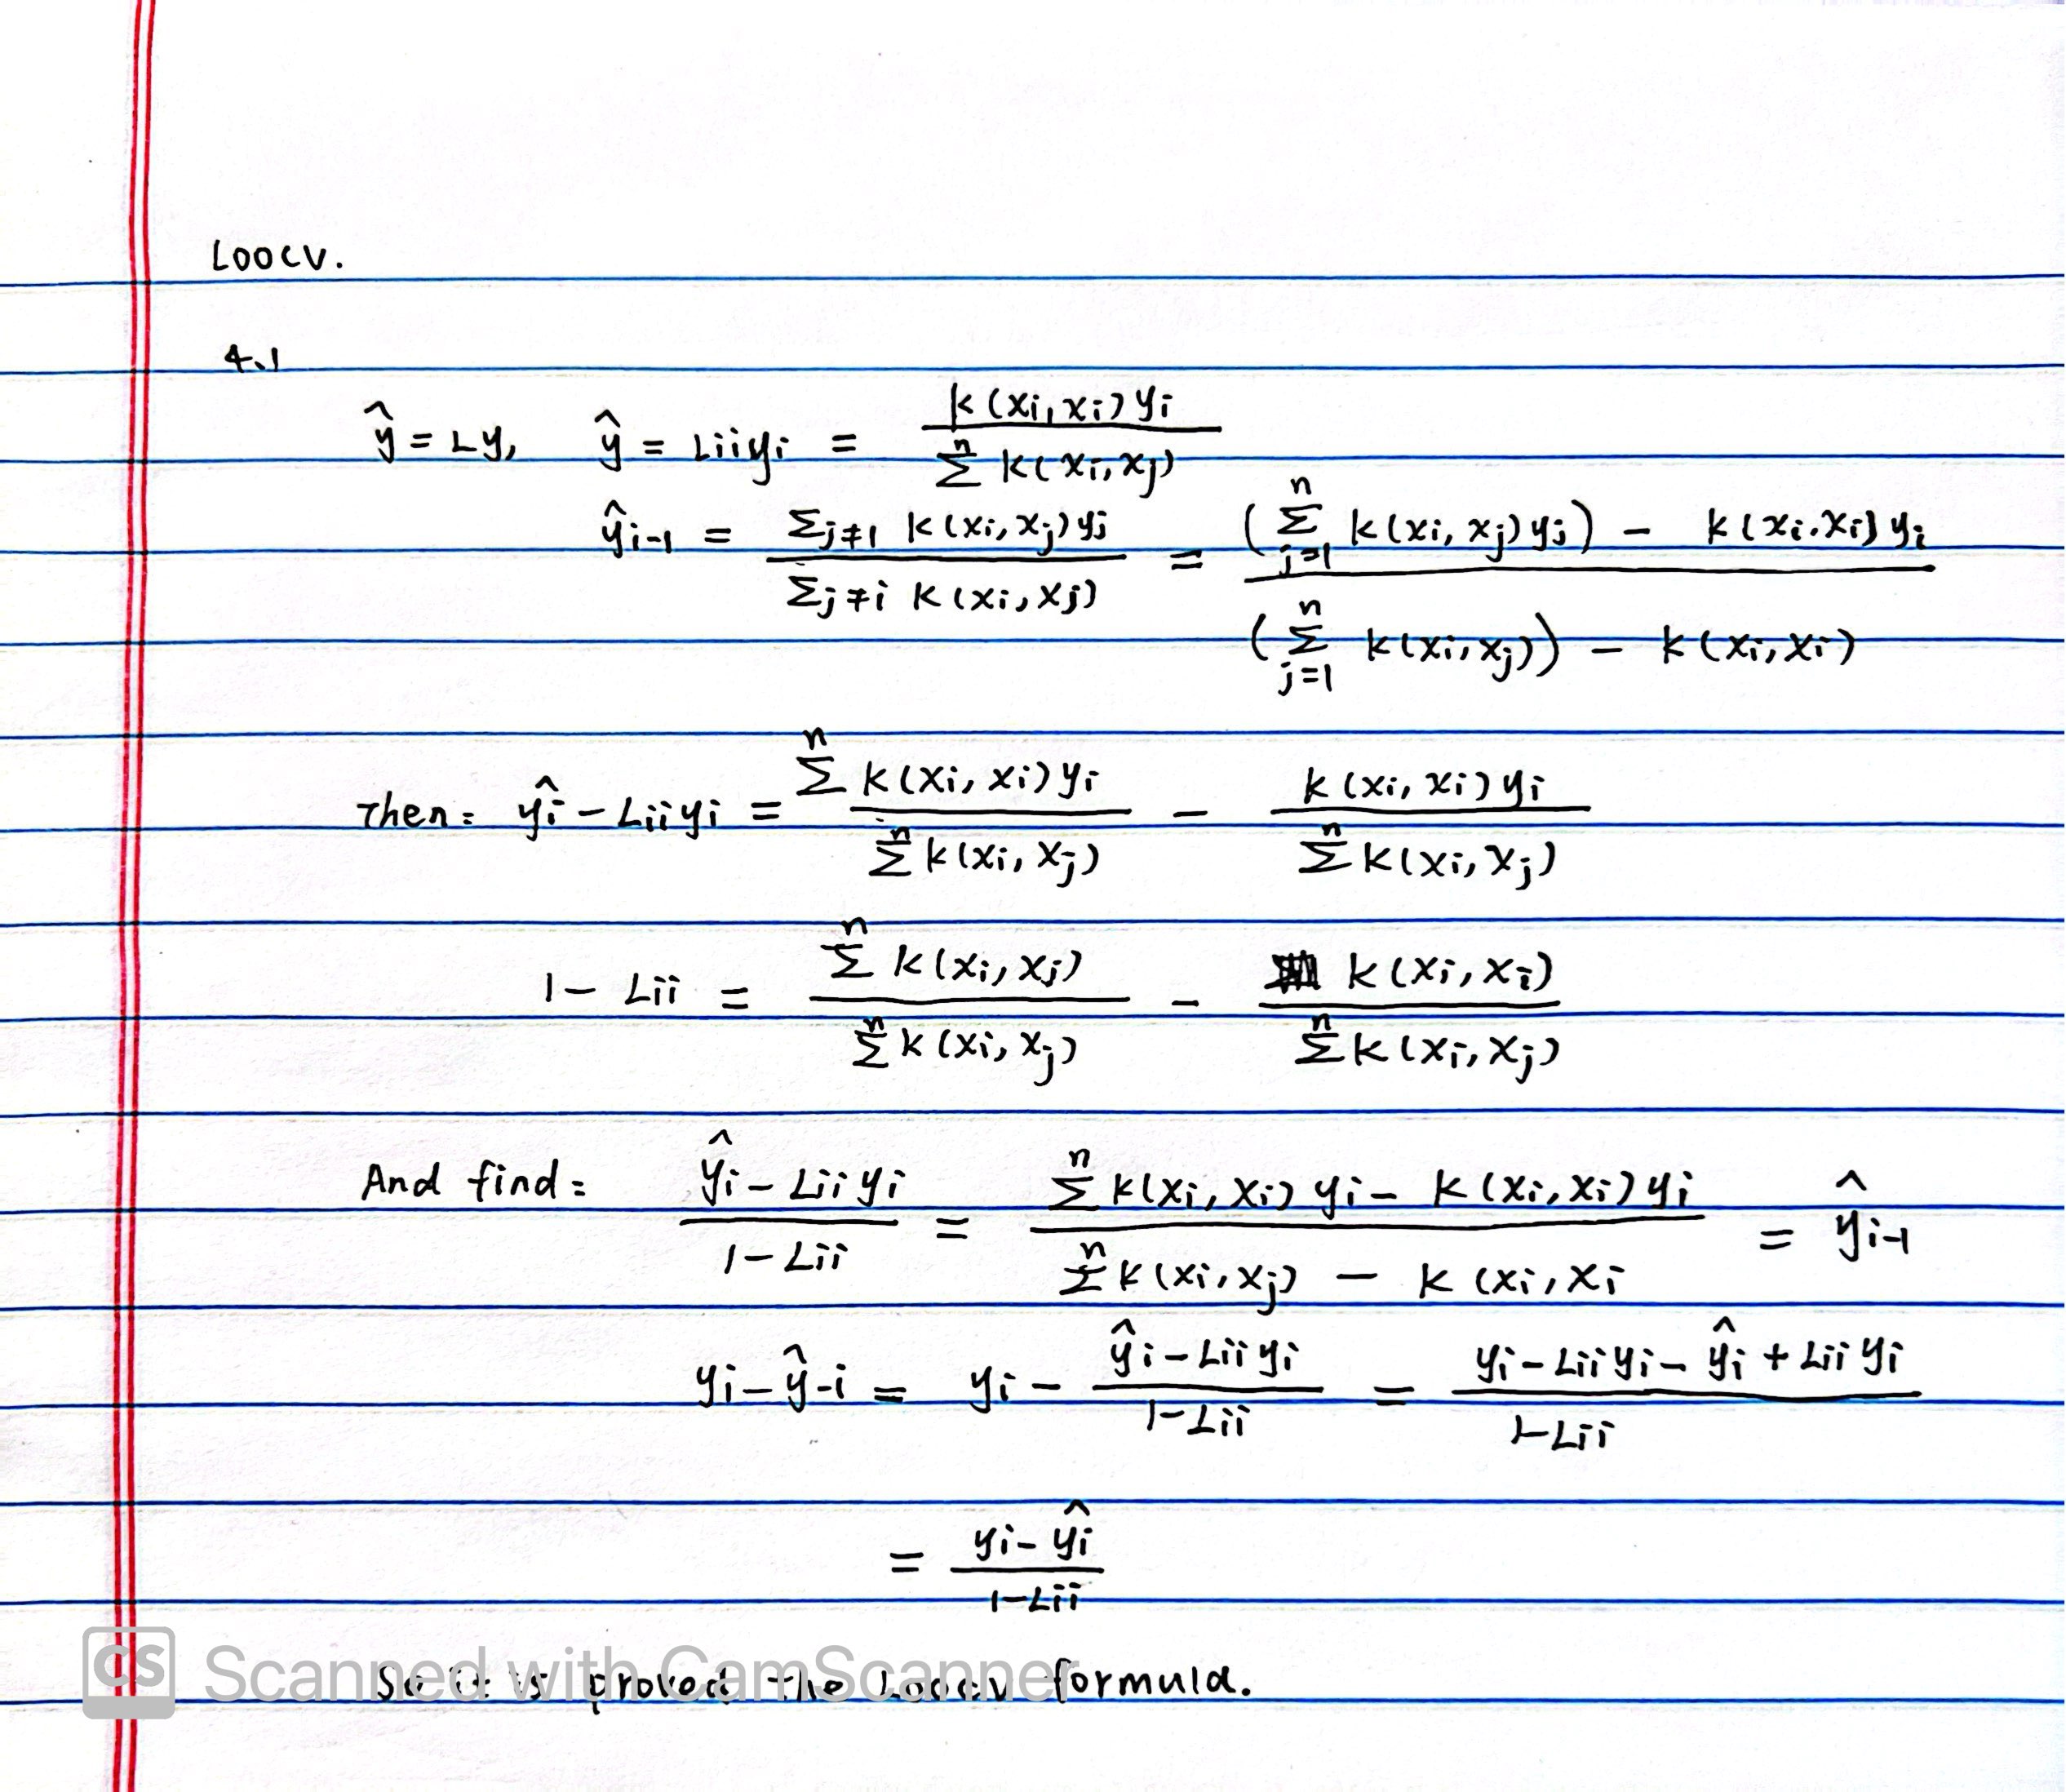 LOOCV.
4.1
ŷ = Ly, ŷ = Lii yi = k(xi, xi) yi / Σ^n k(xi, xj)
ŷi-1 = Σj≠1 k(xi, xj) yj / Σj≠i k(xi, xj) = (Σ^n j=1 k(xi, xj) yj) - k(xi, xi) yi / (Σ^n j=1 k(xi, xj)) - k(xi, xi)
Then: ŷi - Lii yi = Σ^n k(xi, xi) yi / Σ^n k(xi, xj) - k(xi, xi) yi / Σ^n k(xi, xj)
1 - Lii = Σ^n k(xi, xj) / Σ^n k(xi, xj) - k(xi, xi) / Σ^n k(xi, xj)
And find: ŷi - Lii yi / 1 - Lii = Σ^n k(xi, xi) yi - k(xi, xi) yi / Σ^n k(xi, xj) - k(xi, xi = ŷi-1
yi - ŷ-i = yi - ŷi - Lii yi / 1 - Lii = yi - Lii yi - ŷi + Lii yi / 1 - Lii
= yi - ŷi / 1 - Lii
So it is proved the Loocv formula.
CS Scanned with CamScanner